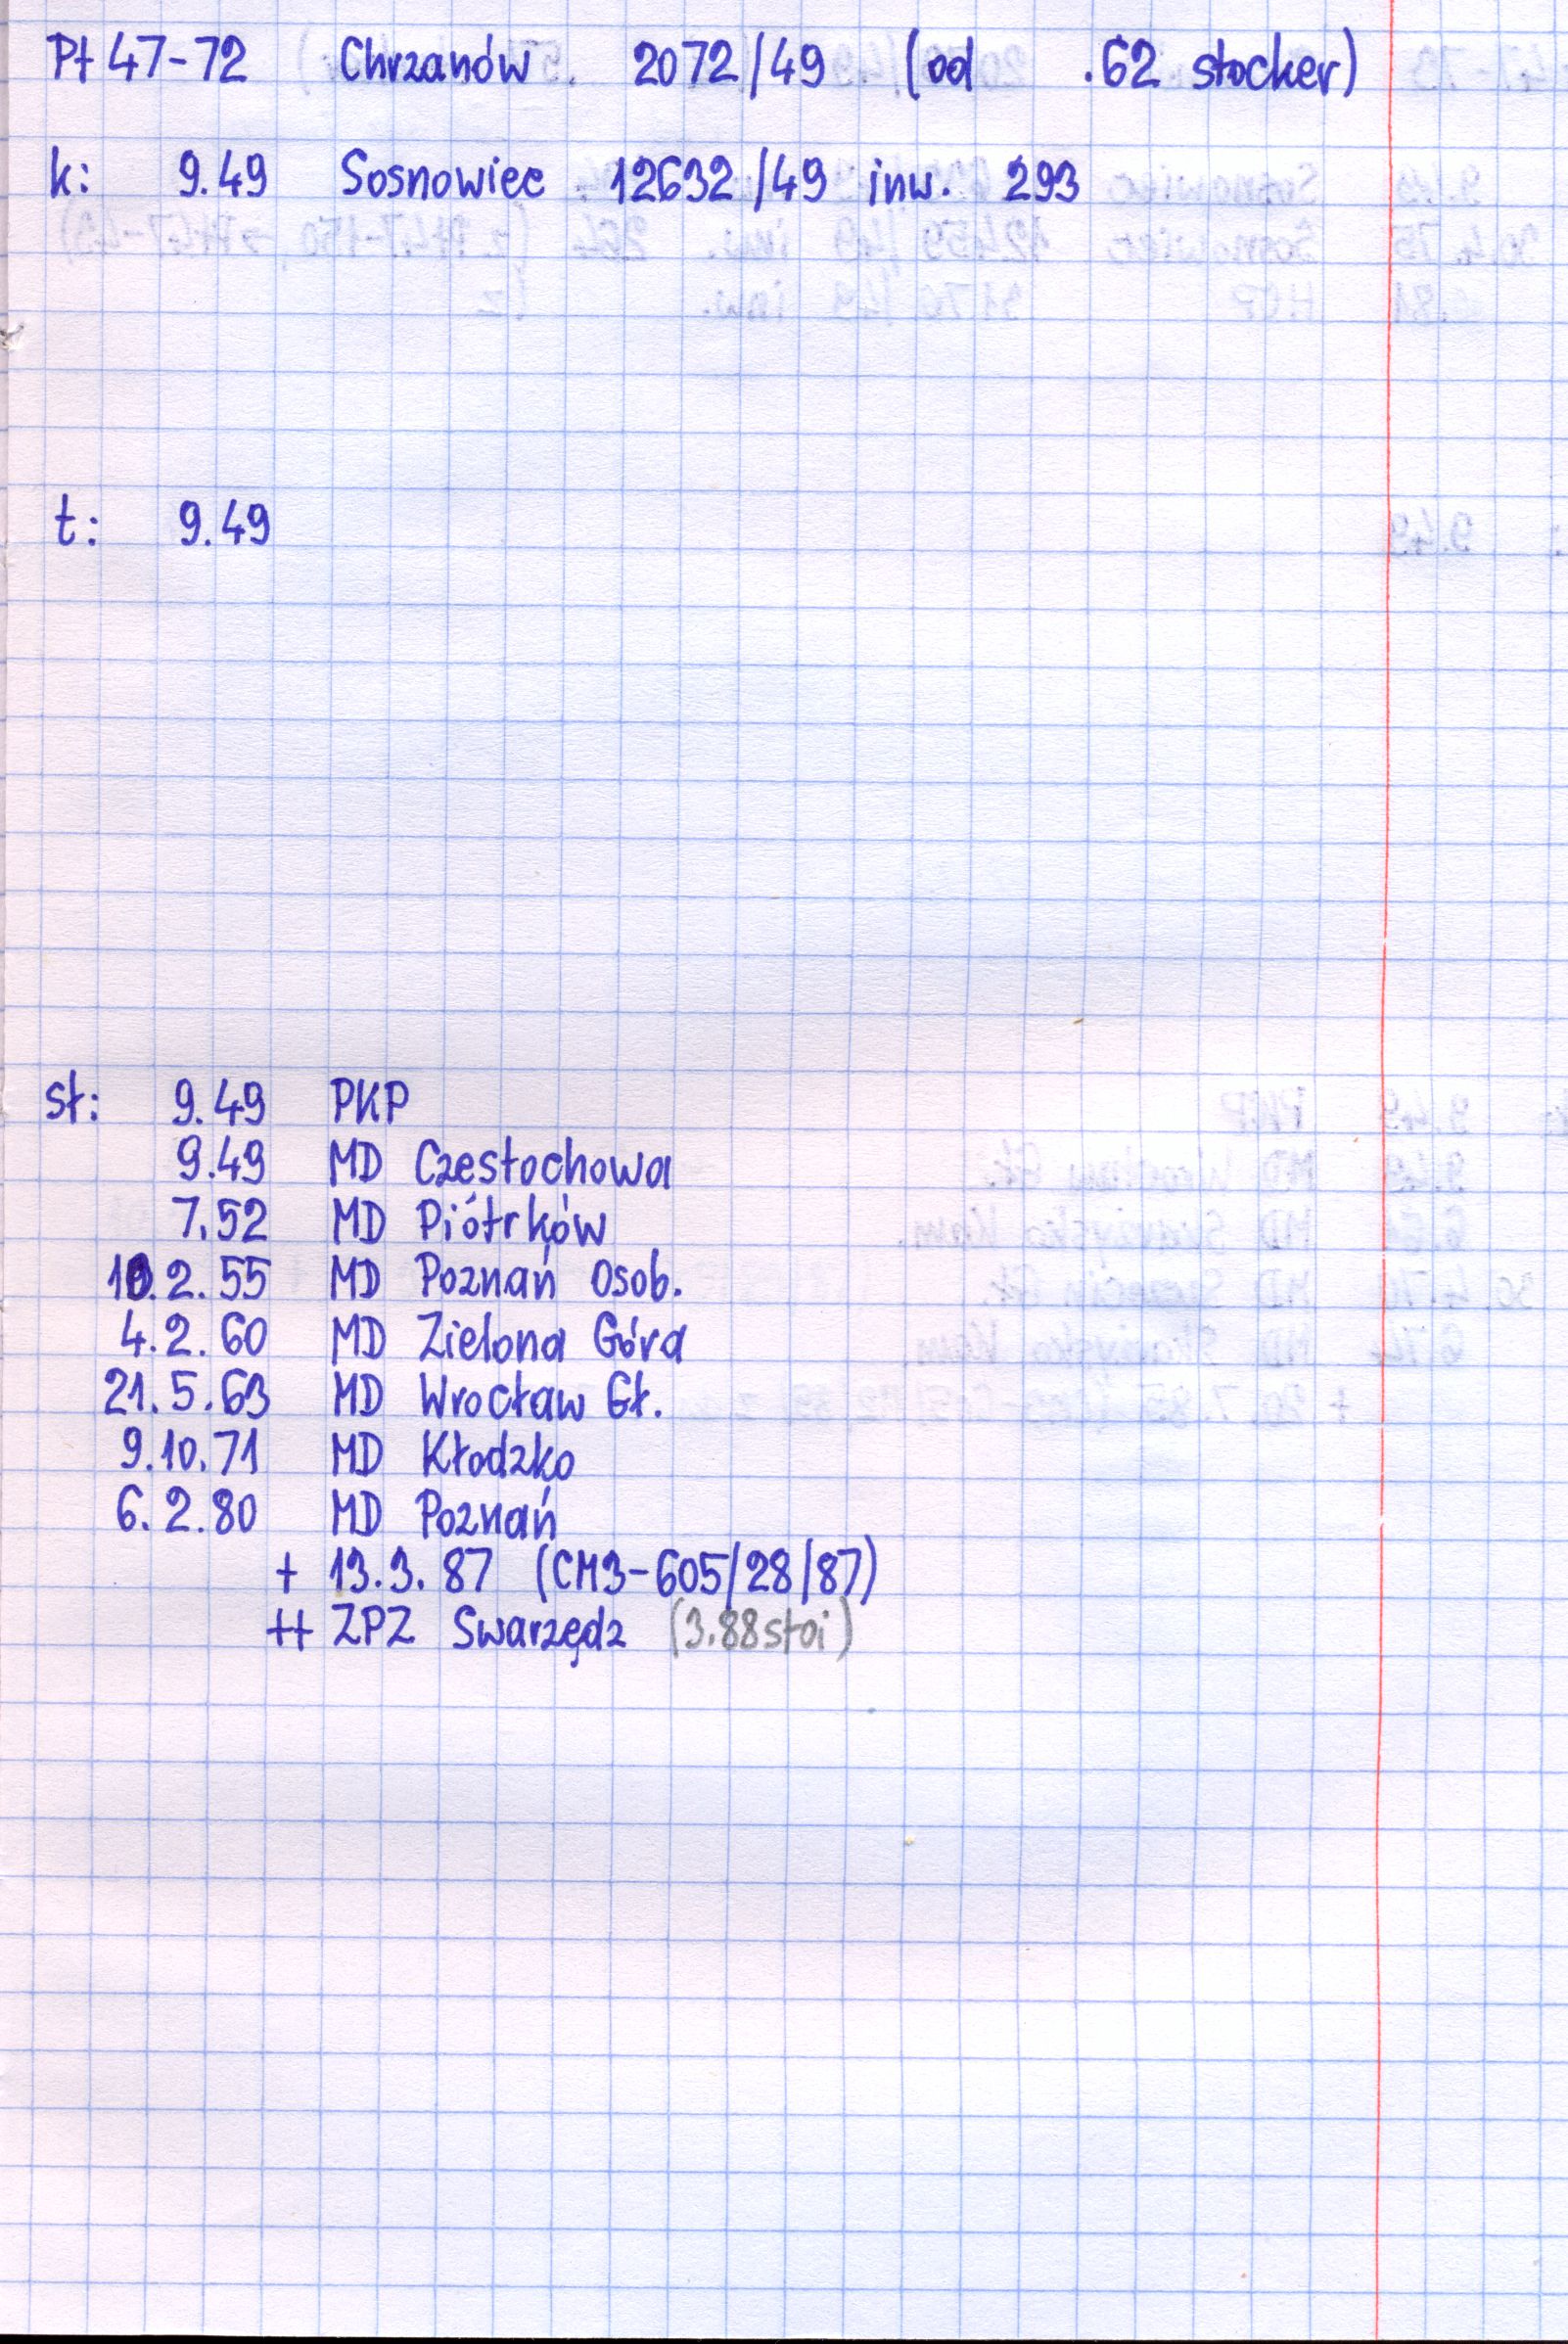 Pt 47-72 Chrzanów 2072/49 (od .62 stocker)
k: 9.49 Sosnowiec 12632/49 inw. 293
t: 9.49
st: 9.49 PKP
9.49 MD Czestochowa
7.52 MD Piótrków
10.2.55 MD Poznań Osob.
4.2.60 MD Zielona Góra
21.5.63 MD Wrocław Gł.
9.10.71 MD Kłodzko
6.2.80 MD Poznań
+ 13.3.87 (CM3-605/28/87)
++ ZPZ Swarzędz (3.88 stoi)